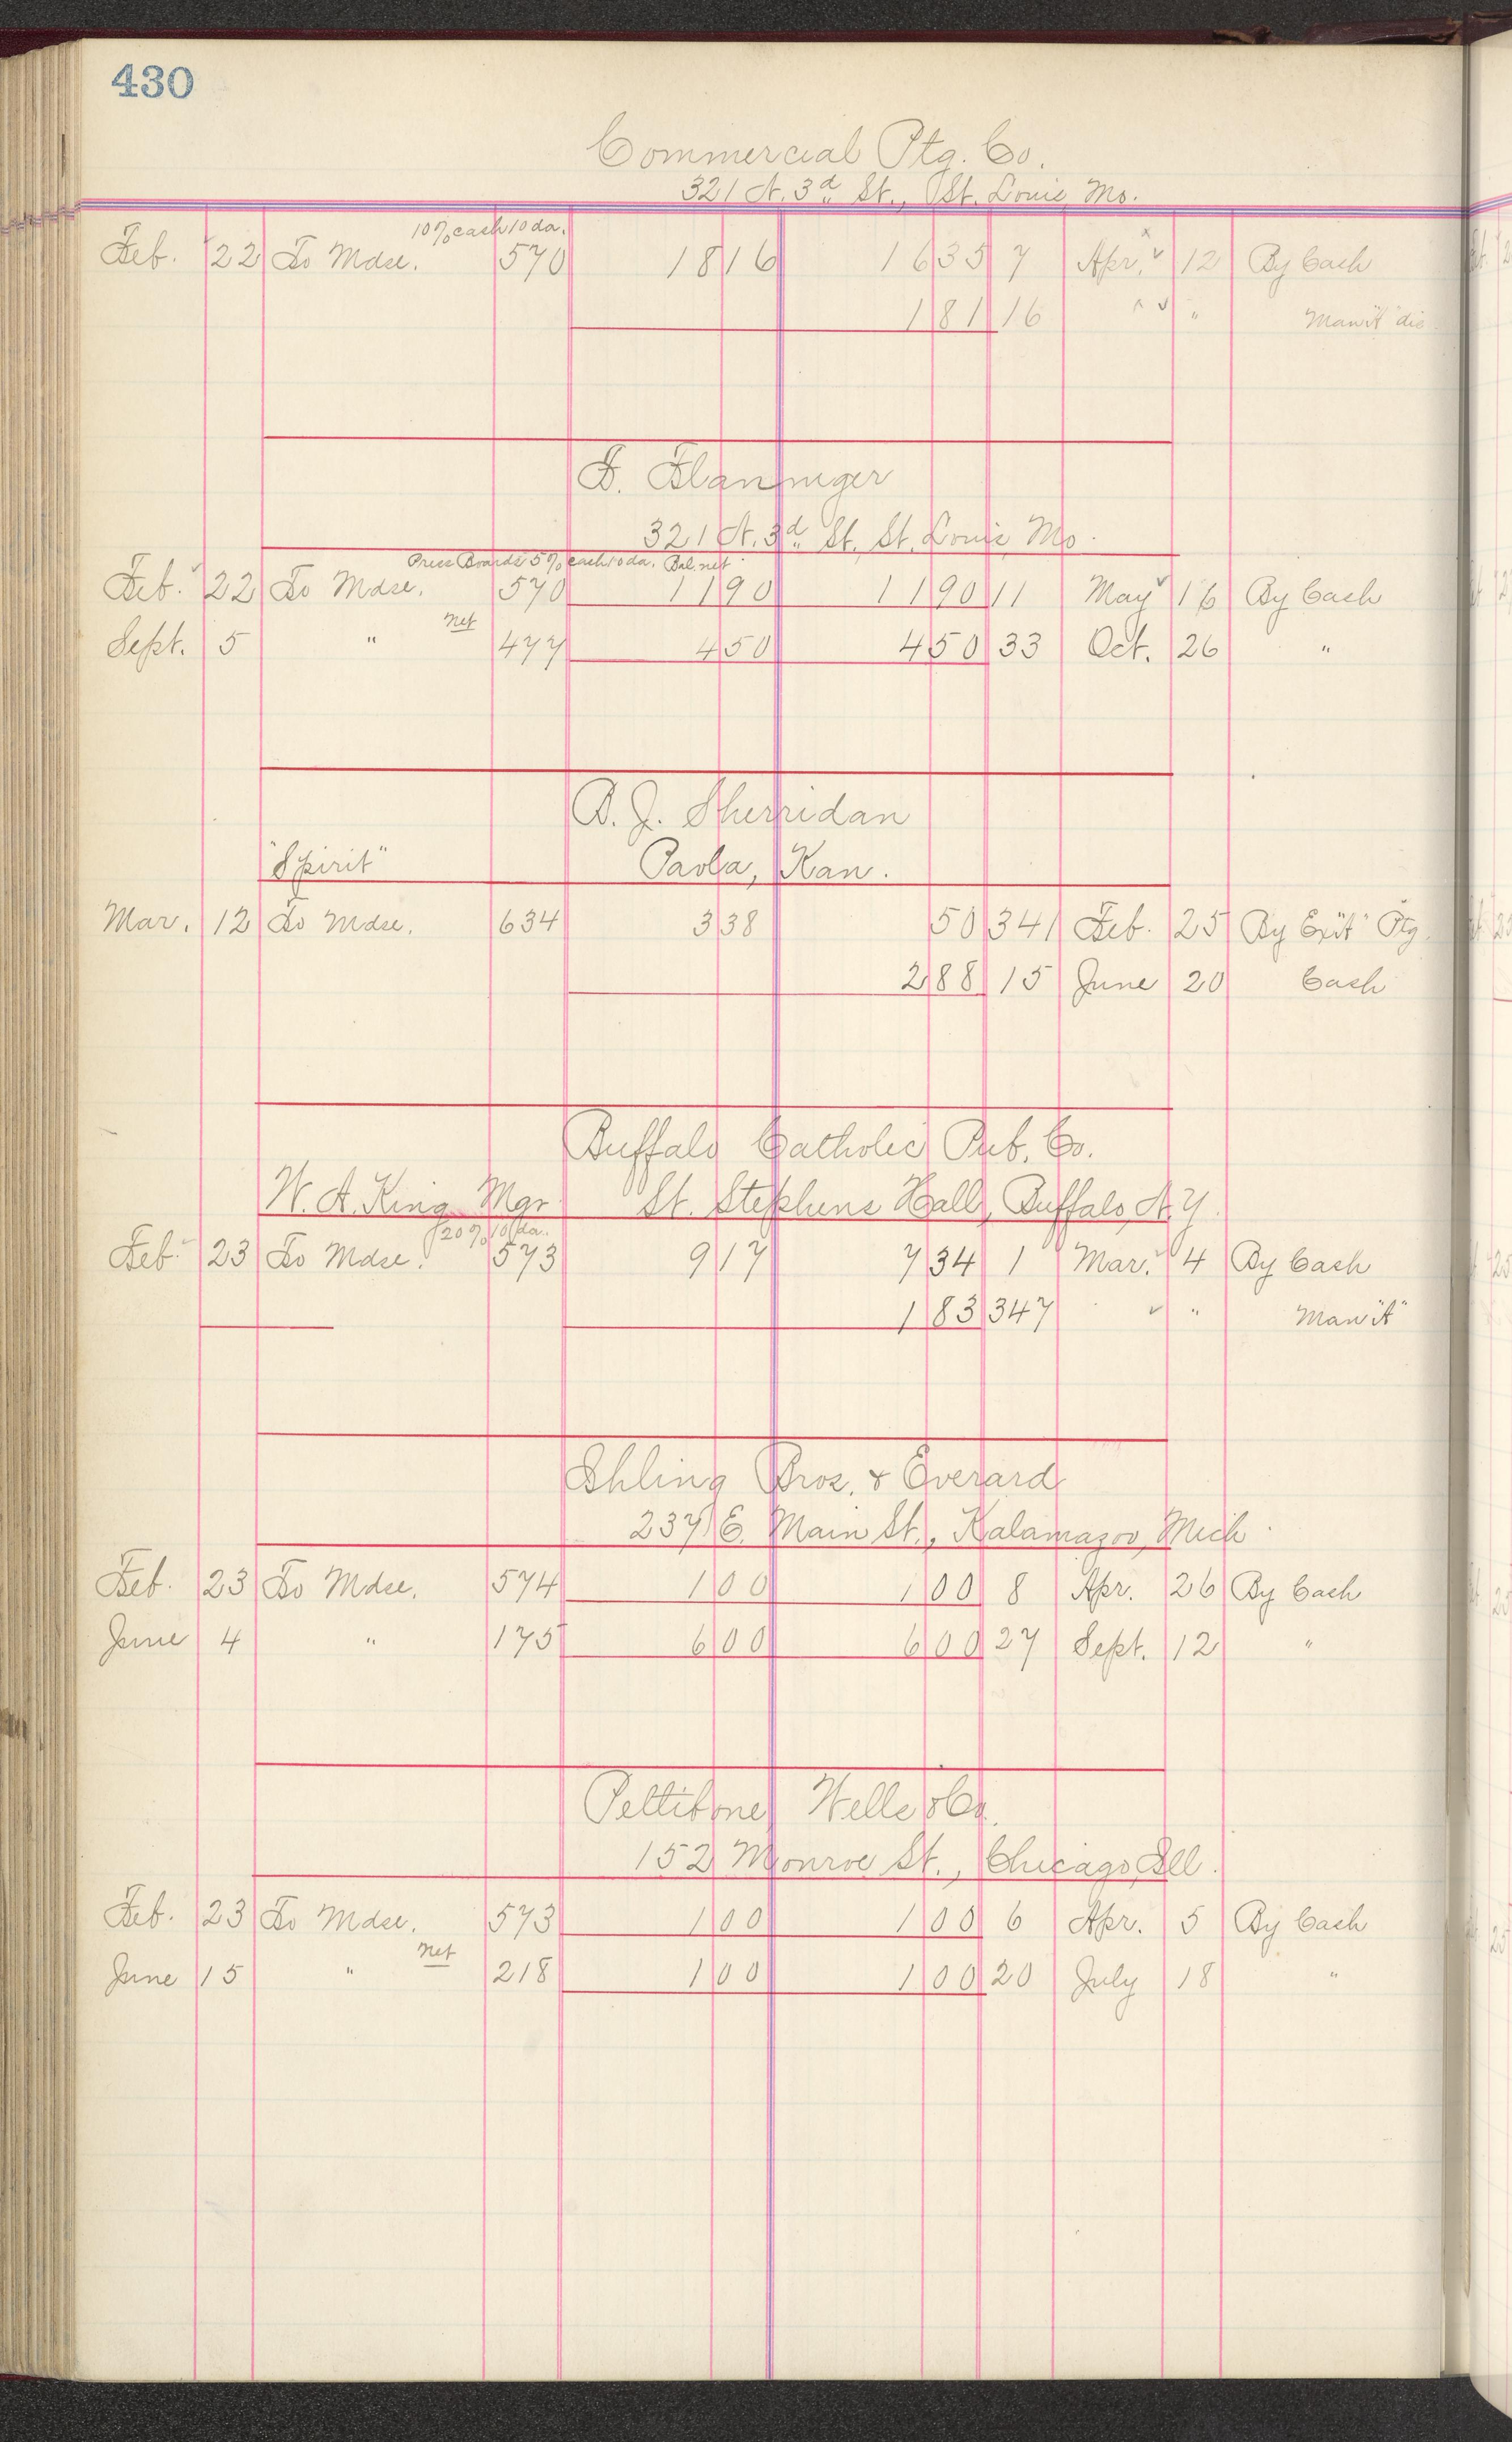 430
Commercial Ptg. Co.
321 N. 3d St., St. Louis Mo.
10% cash 10 da.
Feb. 22 To Mdse. 570 18 16 16 35 7 Apr. 12 By Cash
1 81 16 " Man "A" dis
F. Flanniger
321 N. 3d St. St. Louis Mo.
Press Boards 5% cash 10 da. Bal. net
Feb. 22 To Mdse. 570 11 90 11 90 11 May 16 By Cash
net
Sept. 5 " 477 4 50 4 50 33 Oct. 26 "
B. J. Sherridan
"Spirit" Paola, Kan.
Mar. 12 To Mdse. 634 3 38 50 341 Feb. 25 By Ex "A" Ptg.
2 88 15 June 20 Cash
Buffalo Catholic Pub. Co.
W. A. King Mgr. St. Stephens Hall, Buffalo, N.Y.
20% 10 da.
Feb. 23 To Mdse. 573 9 17 7 34 1 Mar. 4 By Cash
1 83 347 " Man "A"
Ihling Bros. & Everard
237 E. Main St., Kalamazoo, Mich.
Feb. 23 To Mdse. 574 1 00 1 00 8 Apr. 26 By Cash
June 4 " 175 6 00 6 00 27 Sept. 12 "
Pettibone, Wells & Co.
152 Monroe St., Chicago, Ill.
Feb. 23 To Mdse. 573 1 00 1 00 6 Apr. 5 By Cash
net
June 15 " 218 1 00 1 00 20 July 18 "